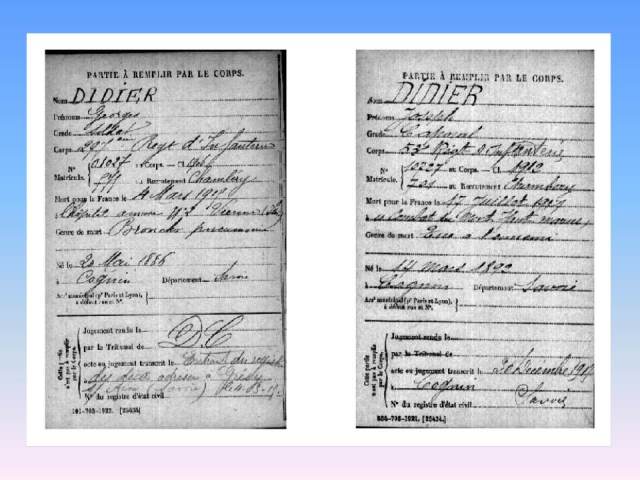 PARTIE À REMPLIR PAR LE CORPS.
Nom DIDIER
Prénoms Georges
Grade Soldat
Corps 297 ème Regt d'Infanterie
N° 01027 au Corps. — Cl.
Matricule. au Recrutement Chambéry
Mort pour la France le 4 Mars 1917
Hôpital annexe N° 2 Vienne
Genre de mort Broncho pneumonie
Né le 20 Mai 1886
à Cognin Département Savoie
Arrt municipal (pr Paris et Lyon), à défaut rue et N°.
Cette partie n'est pas à remplir par le Corps.
Jugement rendu le
par le Tribunal de
acte ou jugement transcrit le Extrait du registre
des décès adressé à Grésy
N° du registre d'état civil
101-708-1922. [26434]
PARTIE À REMPLIR PAR LE CORPS.
Nom DIDIER
Prénoms Joseph
Grade Caporal
Corps 53e Regt d'Infanterie
N° 10227 au Corps. — Cl. 1912
Matricule. au Recrutement Chambéry
Mort pour la France le 17 Juillet 1917
au Combat du Mont Haut
Genre de mort Tué à l'ennemi
Né le 14 mars 1892
à Cognin Département Savoie
Arrt municipal (pr Paris et Lyon), à défaut rue et N°.
Cette partie n'est pas à remplir par le Corps.
Jugement rendu le
par le Tribunal de
acte ou jugement transcrit le Décembre 1917
à Cognin
Savoie
N° du registre d'état civil
[26434.]